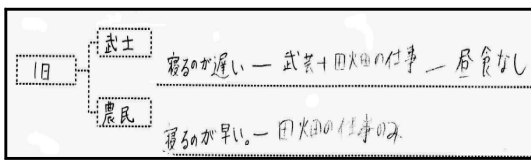 旧
武士
寝るのが遅い ー 武芸+田畑の仕事 ー 昼食なし
農民
寝るのが早い。ー 田畑の仕事のみ